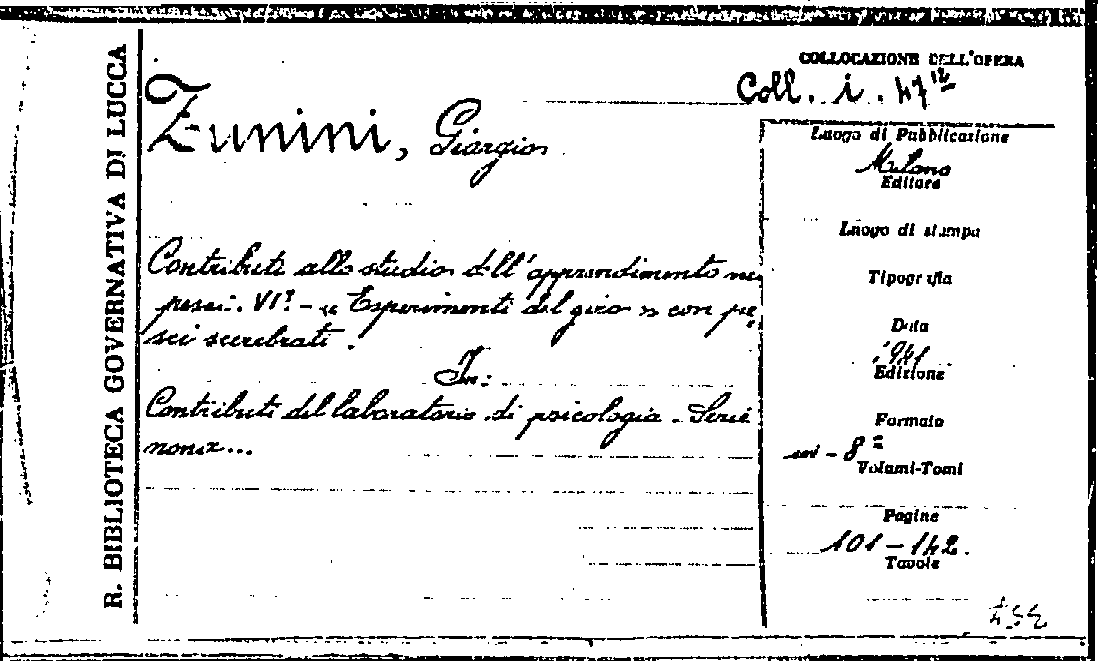 R. BIBLIOTECA GOVERNATIVA DI LUCCA
COLLOCAZIONE DELL'OPERA
Coll. i. 47 12
Zunini, Giorgio
Luogo di Pubblicazione
Milano
Editore
Luogo di stampa
Tipografia
Data
1941
Edizione
Formato
in - 8º
Volumi-Tomi
Pagine
101-142.
Tavole
Contributi allo studio dell'apprendimento nei
pesci. VIº - "Esperimenti del giro" con pe
sci scerebrati.
In:
Contributi del laboratorio di psicologia. Serie
nona...